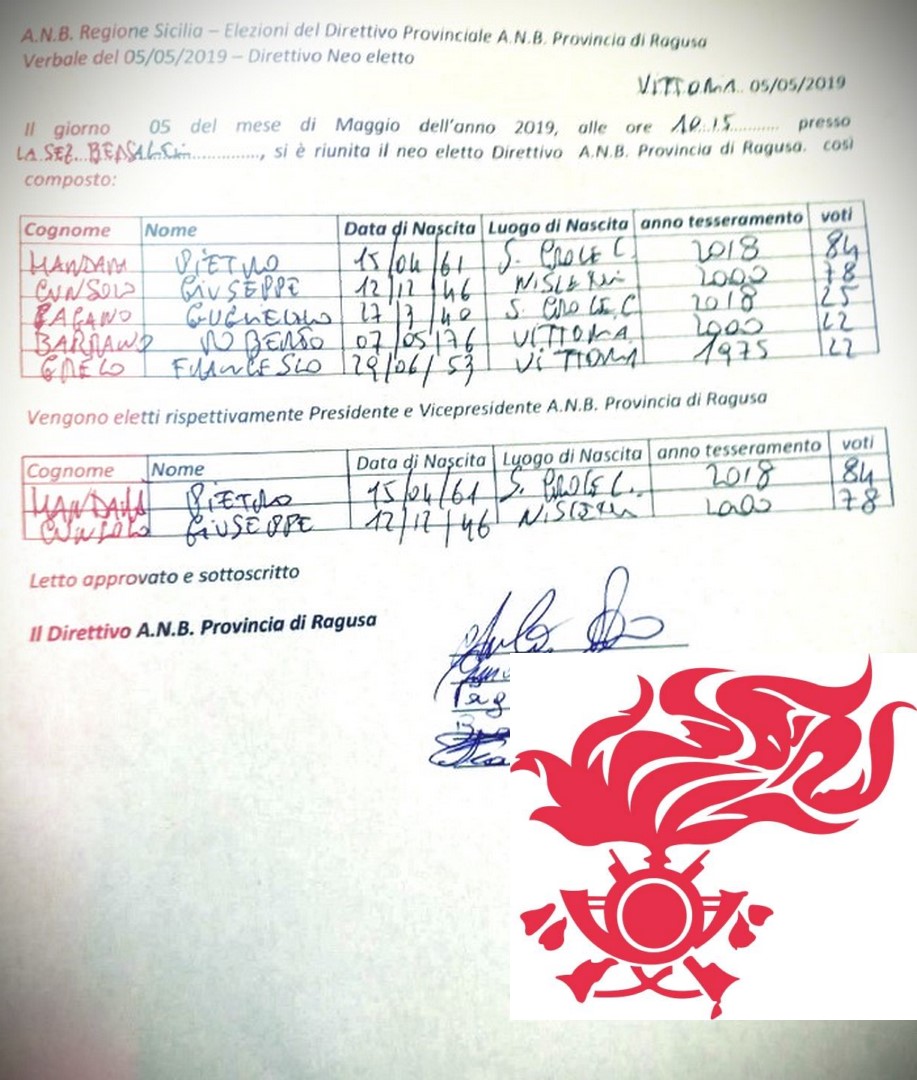 A.N.B. Regione Sicilia – Elezioni del Direttivo Provinciale A.N.B. Provincia di Ragusa
Verbale del 05/05/2019 – Direttivo Neo eletto
VITTORIA 05/05/2019
Il giorno 05 del mese di Maggio dell'anno 2019, alle ore 10.15 presso
LA SEZ. BERSAGLIERI, si è riunita il neo eletto Direttivo A.N.B. Provincia di Ragusa. così
composto:
Cognome Nome Data di Nascita Luogo di Nascita anno tesseramento voti
PIETRO 15/04/61 S. CROCE C. 2018 84
CUNSOLO GIUSEPPE 12/12/46 NISCEMI 2000 78
PAGANO GUGLIELMO S. CROCE C. 2018 25
ROBERTO 07/05/76 VITTORIA 2000 22
GRECO FRANCESCO 29/06/53 VITTORIA 1975 22
Vengono eletti rispettivamente Presidente e Vicepresidente A.N.B. Provincia di Ragusa
Cognome Nome Data di Nascita Luogo di Nascita anno tesseramento voti
PIETRO 15/04/61 S. CROCE C. 2018 84
CUNSOLO GIUSEPPE 12/12/46 NISCEMI 2000 78
Letto approvato e sottoscritto
Il Direttivo A.N.B. Provincia di Ragusa